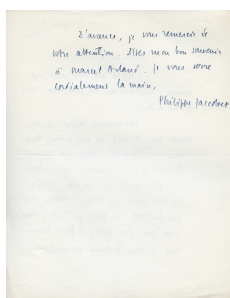 D'avance, je vous remercie de
votre attention. Dites mon bon souvenir
à Marcel Arland. Je vous serre
cordialement la main,
Philippe Jaccottet